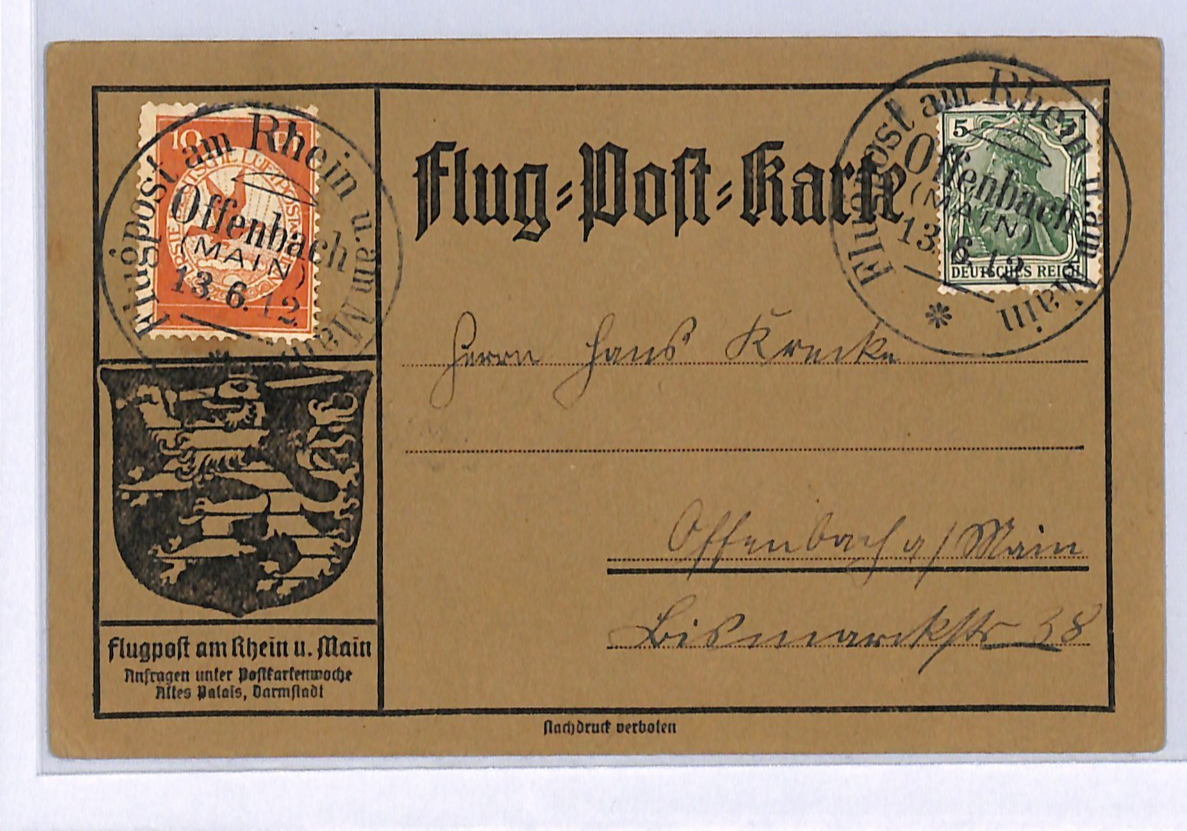 Flug-Post-Karte
10
Flugpost am Rhein u. am Main
Offenbach
(MAIN)
13.6.12.
5
DEUTSCHES REICH
Flugpost am Rhein u. am Main
Offenbach
(MAIN)
13.6.12.
Herrn Hans Krecke
Offenbach a/Main
Bismarckstr 38
Flugpost am Rhein u. Main
Anfragen unter Postkartenwoche
Altes Palais, Darmstadt
Nachdruck verboten